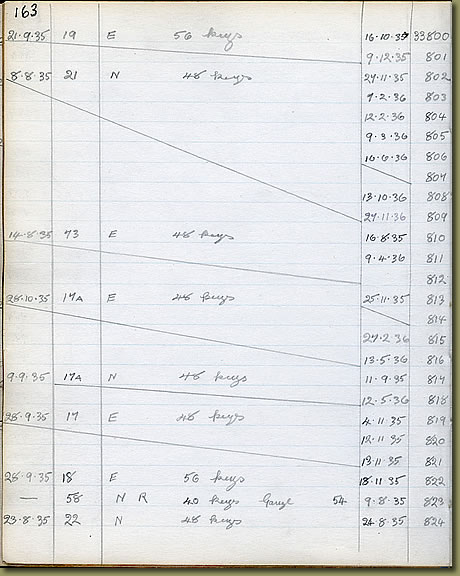 163
21.9.35 19 E 56 keys 16.10.35 33800
9.12.35 801
8.8.35 21 N 48 keys 27.11.35 802
7.2.36 803
12.2.36 804
9.3.36 805
16.6.36 806
807
13.10.36 808
27.11.36 809
14.8.35 73 E 48 keys 16.8.35 810
9.4.36 811
812
28.10.35 17A E 48 keys 25.11.35 813
814
27.2.36 815
13.5.36 816
9.9.35 17A N 48 keys 11.9.35 817
12.5.36 818
28.9.35 17 E 48 keys 4.11.35 819
12.11.35 820
13.11.35 821
28.9.35 18 E 56 keys 18.11.35 822
— 58 N R 40 keys 54 9.8.35 823
23.8.35 22 N 48 keys 24.8.35 824